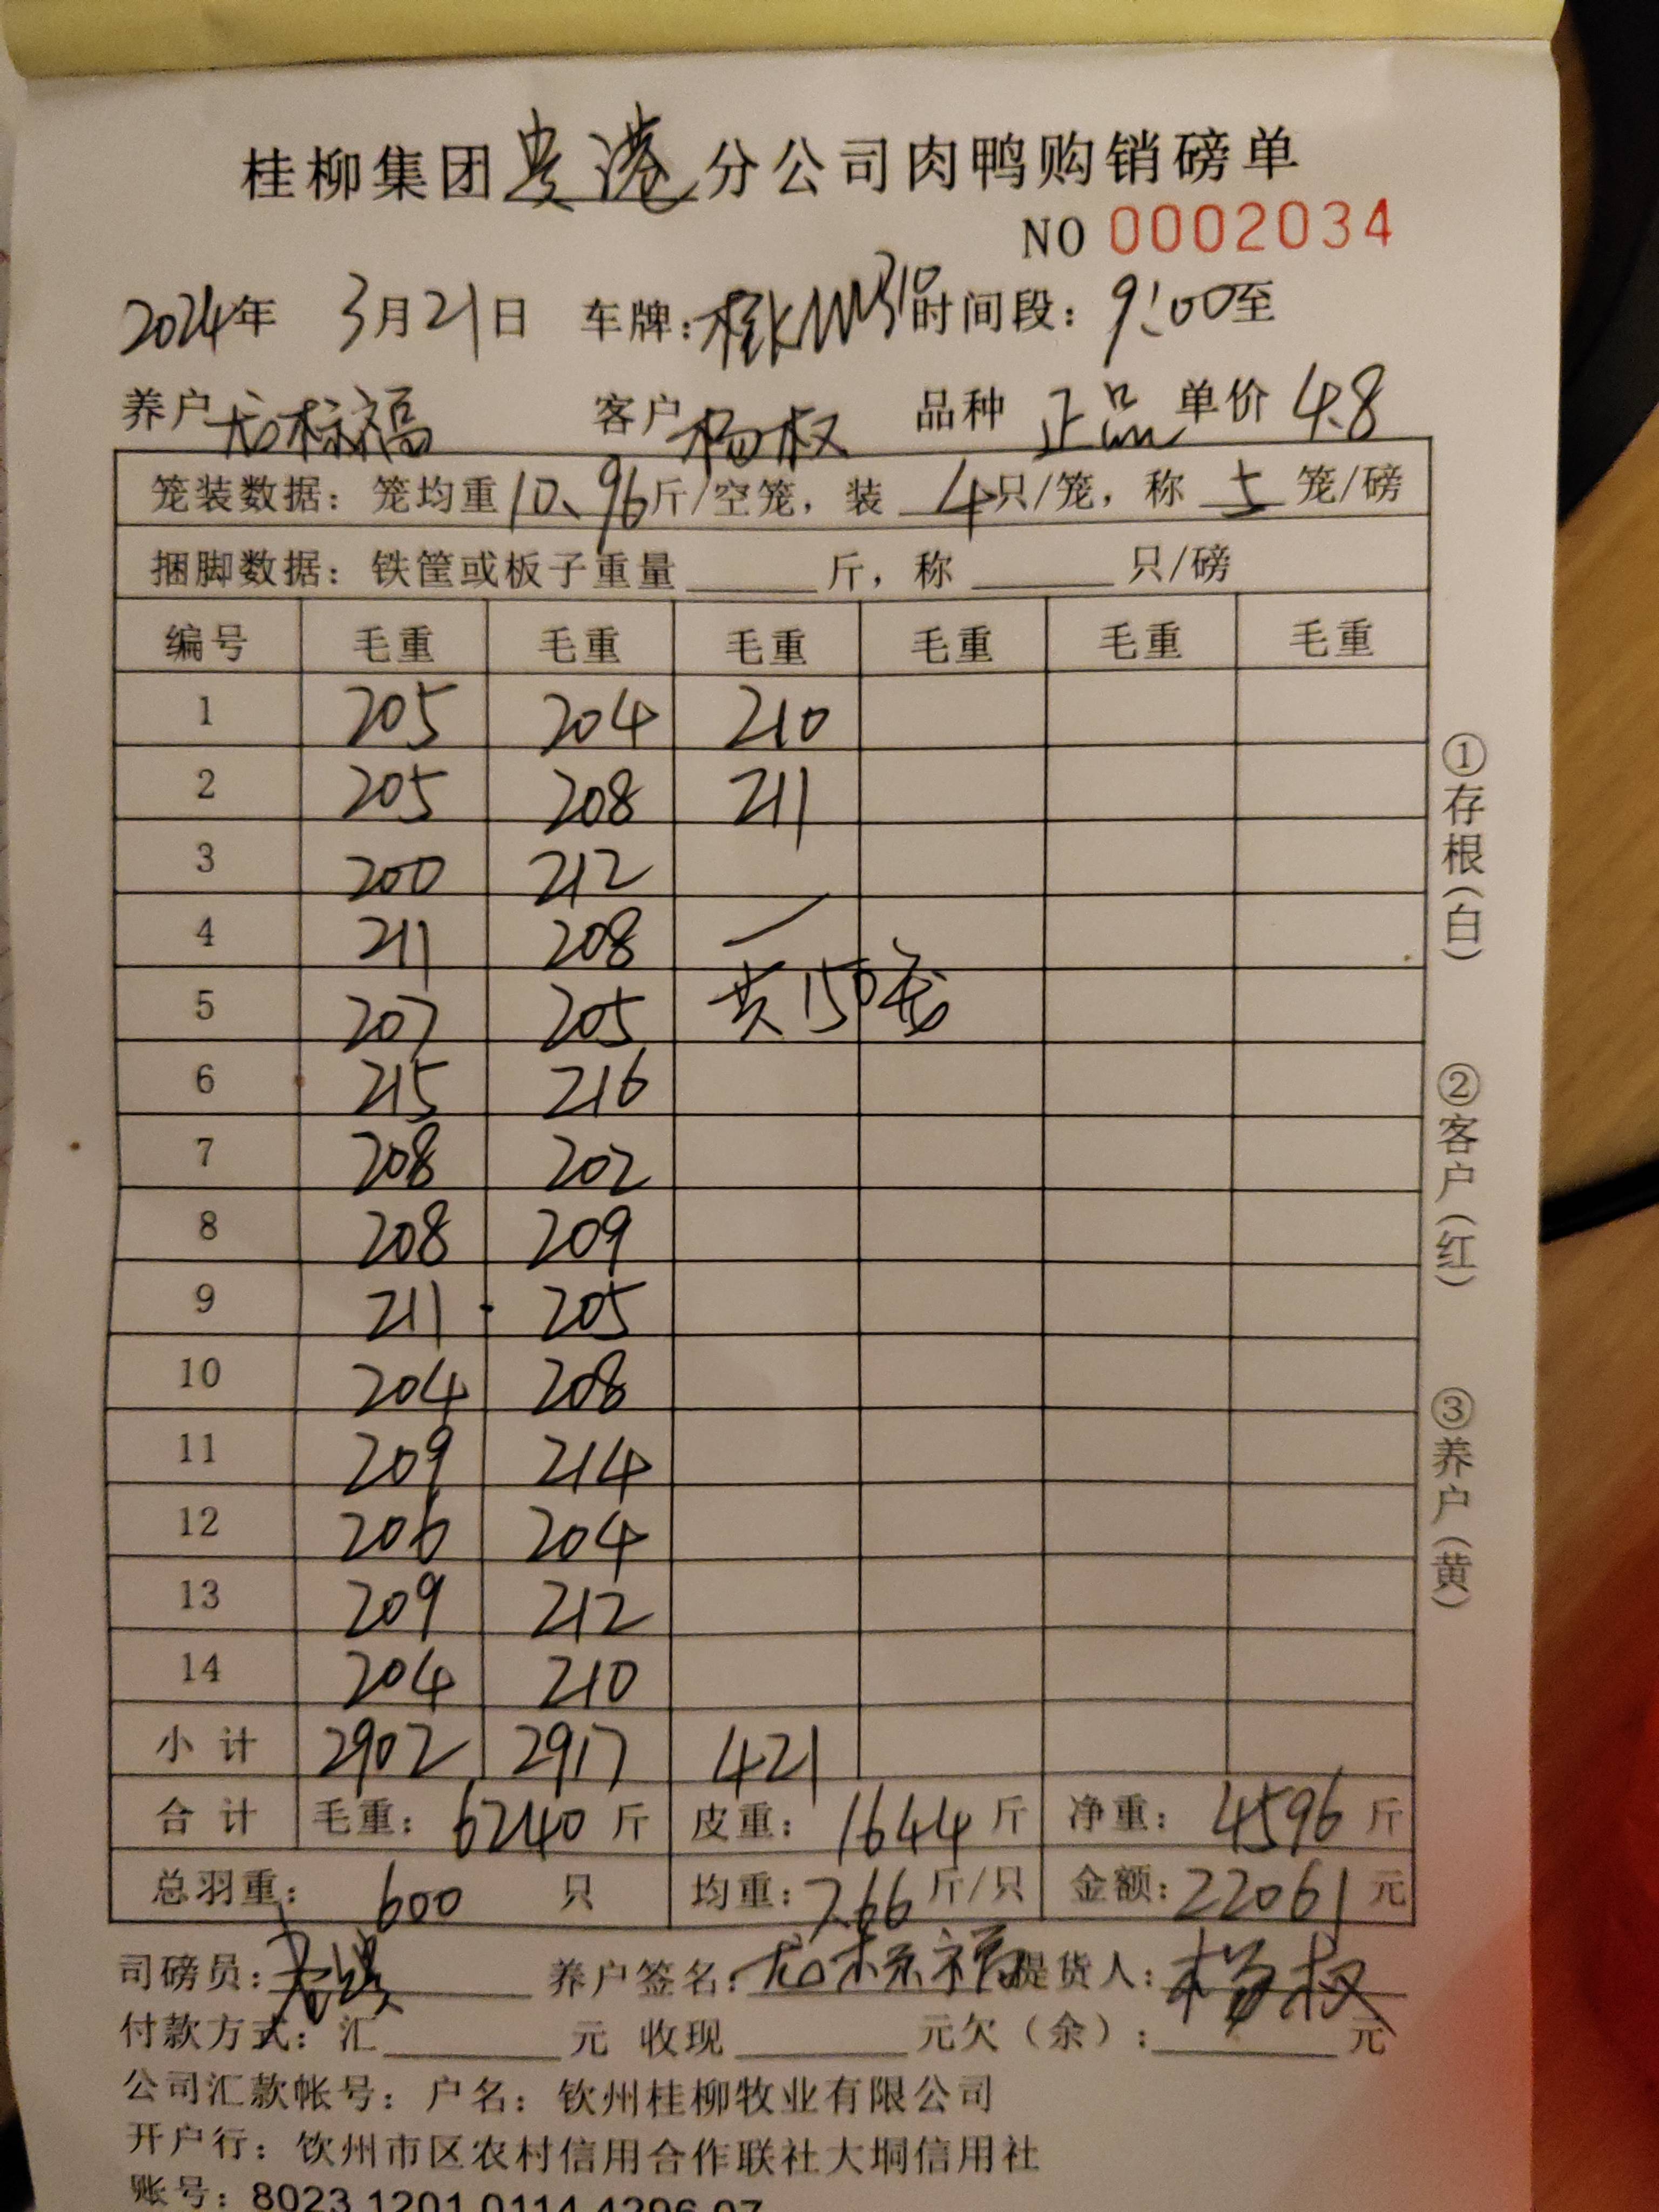 桂柳集团贵港分公司肉鸭购销磅单
NO 0002034
2024年 3月21日 车牌: 时间段: 9:00至
养户 龙标福 客户 杨权 品种 正品 单价 4.8
笼装数据: 笼均重10、96斤/空笼, 装 4只/笼, 称 5 笼/磅
捆脚数据: 铁筐或板子重量______斤, 称______只/磅
编号 毛重 毛重 毛重 毛重 毛重 毛重
1 205 204 210
2 205 208 211
3 200 212
4 211 208
5 207 205 共150笼
6 215 216
7 208 202
8 208 209
9 211 205
10 204 208
11 209 214
12 206 204
13 209 212
14 204 210
小计 2902 2917 421
合计 毛重: 6240斤 皮重: 1644斤 净重: 4596斤
总羽重: 600 只 均重: 7.66斤/只 金额: 22061元
司磅员: 养户签名: 龙标福 提货人: 杨权
付款方式: 汇______元 收现______元欠(余):______元
公司汇款帐号: 户名: 钦州桂柳牧业有限公司
开户行: 钦州市区农村信用合作联社大垌信用社
账号: 8023 1201 0114 4296 07
①存根(白)
②客户(红)
③养户(黄)